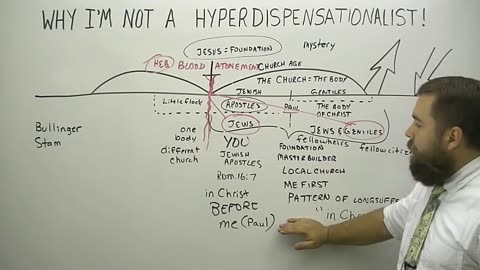 WHY I'M NOT A HYPERDISPENSATIONALIST!
JESUS = FOUNDATION
mystery
HEB BLOOD ATONEMENT
CHURCH AGE
THE CHURCH = THE BODY
JEWISH GENTILES
Little Flock
APOSTLES
PAUL
THE BODY
OF CHRIST
JEWS
JEWS & GENTILES
fellowheirs
fellowcitiz
Bullinger
Stam
one
body
different
church
YOU
JEWISH
APOSTLES
ROM. 16:7
in Christ
BEFORE
me (Paul)
FOUNDATION
MASTERBUILDER
LOCAL CHURCH
ME FIRST
PATTERN OF LONGSUFFE
"in Ch